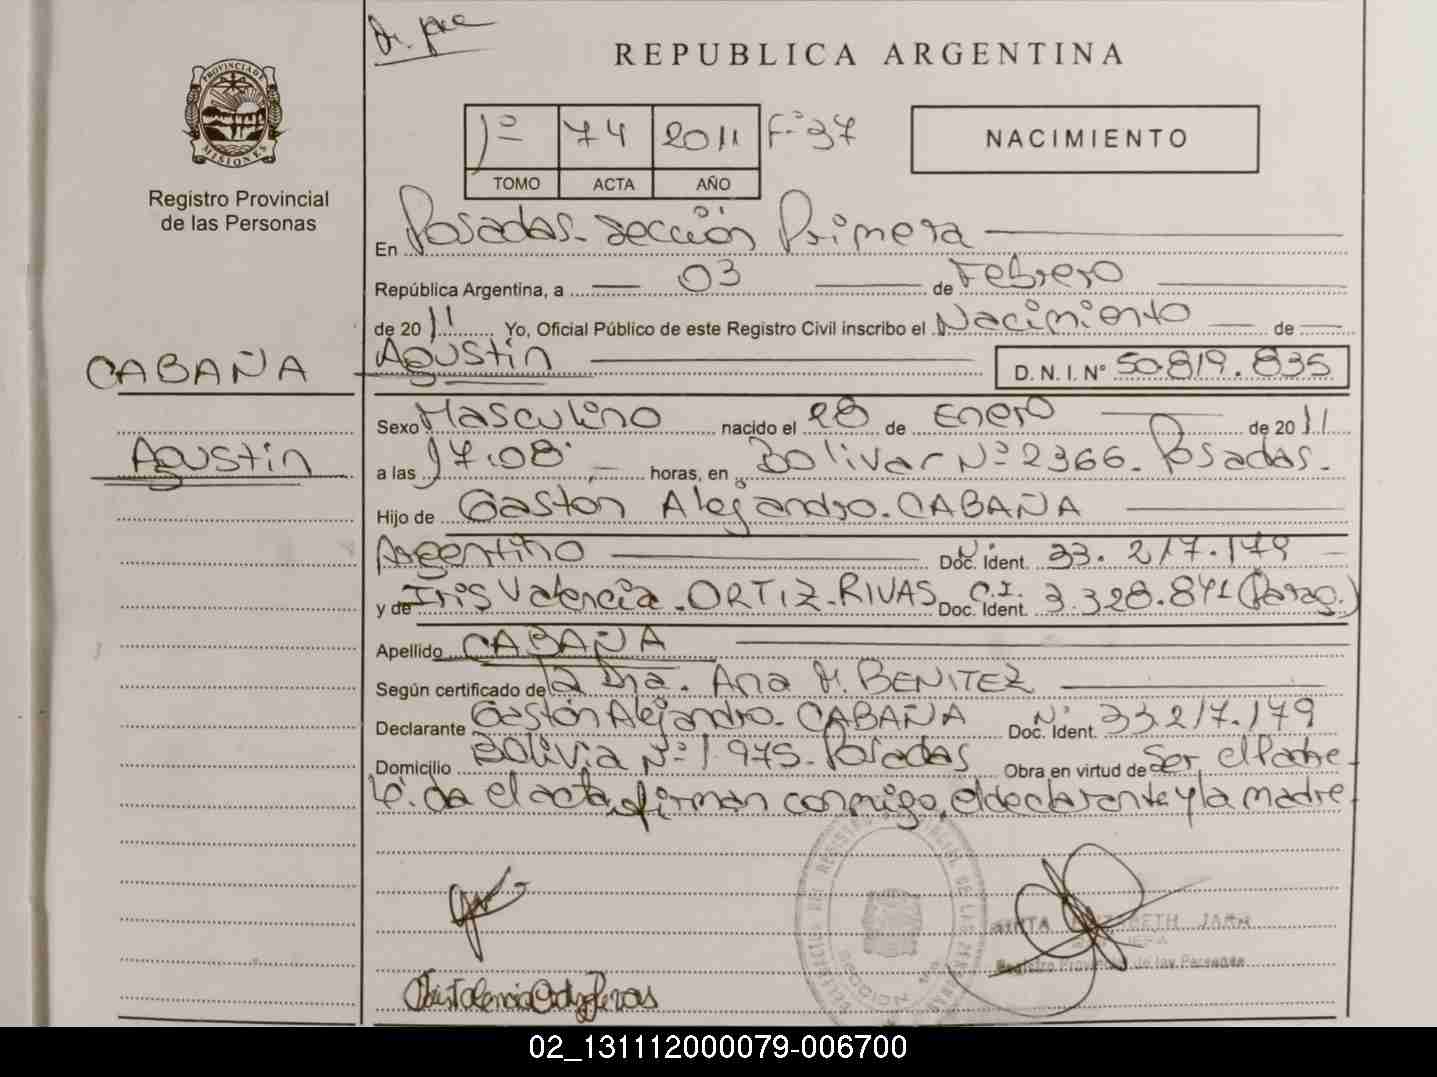 REPUBLICA ARGENTINA
PROVINCIA DE MISIONES
Registro Provincial
de las Personas
1º 74 2011 Fº 37
TOMO ACTA AÑO
NACIMIENTO
En Posadas - Sección Primera
República Argentina, a 03 de Febrero
de 2011 Yo, Oficial Público de este Registro Civil inscribo el Nacimiento de
CABAÑA
Agustin
Agustin D. N. I. Nº 50.819.835
Sexo Masculino nacido el 28 de Enero de 2011
a las 17.08 horas, en Bolivar Nº 2366 - Posadas -
Hijo de Gastón Alejandro - CABAÑA
Argentino Nº Doc. Ident. 33.217.179
y de Iris Valencia - ORTIZ - RIVAS C.I. Doc. Ident. 3.328.841 (Parag.)
Apellido CABAÑA
Según certificado de la Dra. Ana M. BENITEZ
Declarante Gastón Alejandro - CABAÑA Nº Doc. Ident. 33.217.179
Domicilio Bolivia Nº 1.975 - Posadas Obra en virtud de Ser el Padre -
Leida el acta, firman conmigo, el declarante y la madre -
ELIZABETH JARA
Registro Provincial de las Personas
02_131112000079-006700